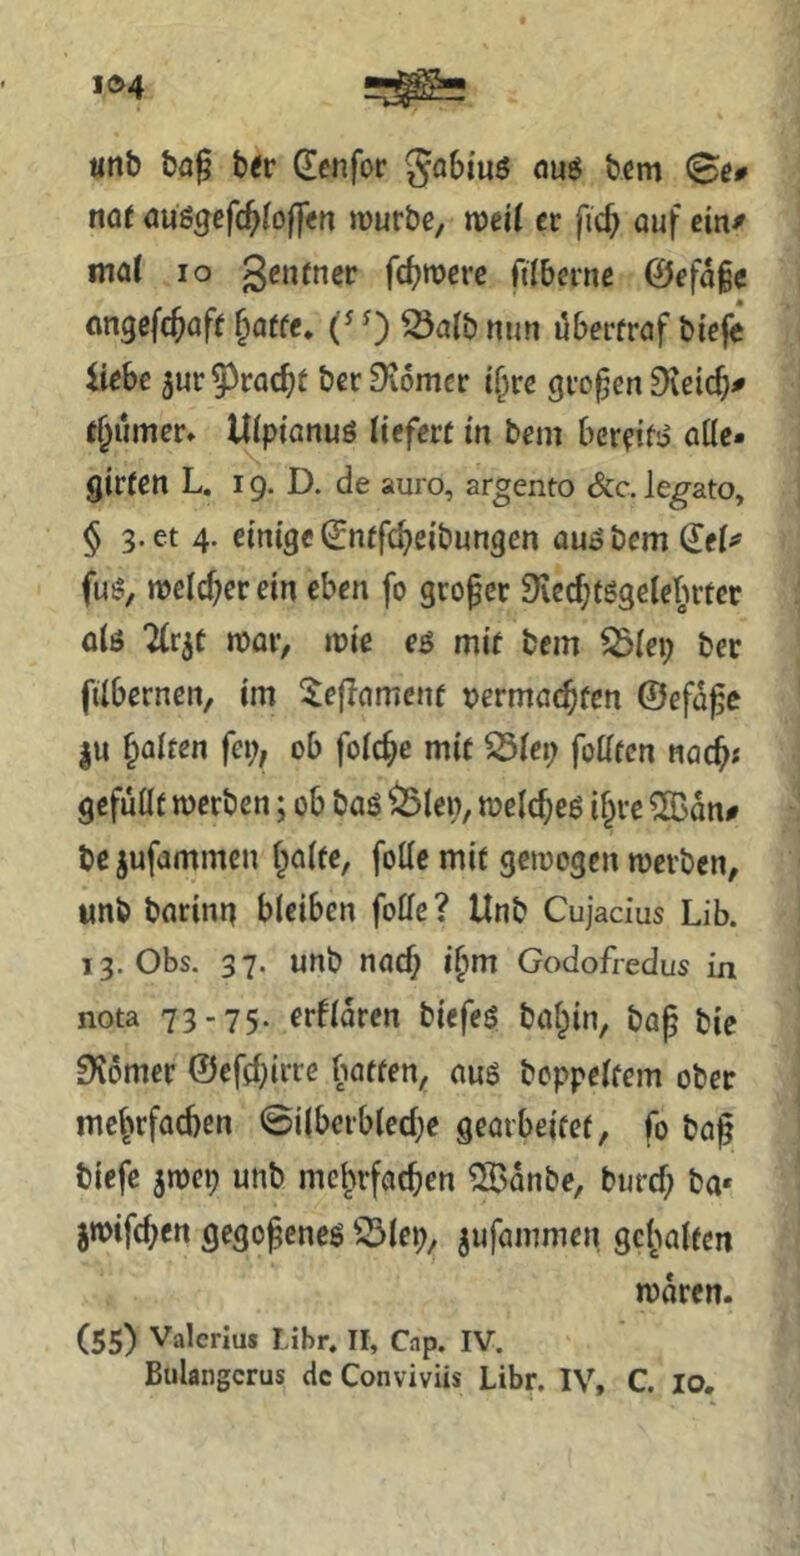 104
und daß der Censor Fabius aus dem Se-
nat ausgeschlossen wurde, weil er sich auf ein-
mal 10 Zentner schwere silberne Gefäße
angeschaft hatte. (55) Bald nun übertraf diese
Liebe zur Pracht der Römer ihre großen Reich-
thümer. Ulpianus liefert in dem bereits alle-
girten L. 19. D. de auro, argento &c. legato,
§ 3. et 4. einige Entscheidungen aus dem Cel-
sus, welcher ein eben so großer Rechtsgelehrter
als Arzt war, wie es mit dem Bley der
silbernen, im Testament vermachten Gefäße
zu halten sey, ob solche mit Bley sollten nach-
gefüllt werden; ob das Bley, welches ihre Wän-
de zusammen halte, solle mit gewogen werden,
und darinn bleiben solle? Und Cujacius Lib.
13. Obs. 37. und nach ihm Godofredus in
nota 73-75. erklären dieses dahin, daß die
Römer Geschirre hatten, aus doppeltem oder
mehrfachen Silberbleche gearbeitet, so daß
diese zwey und mehrfachen Wände, durch da-
zwischen gegoßenes Bley, zusammen gehalten
wären.
(55) Valerius Libr. II, Cap. IV.
Bulangerus de Conviviis Libr. IV, C. 10.